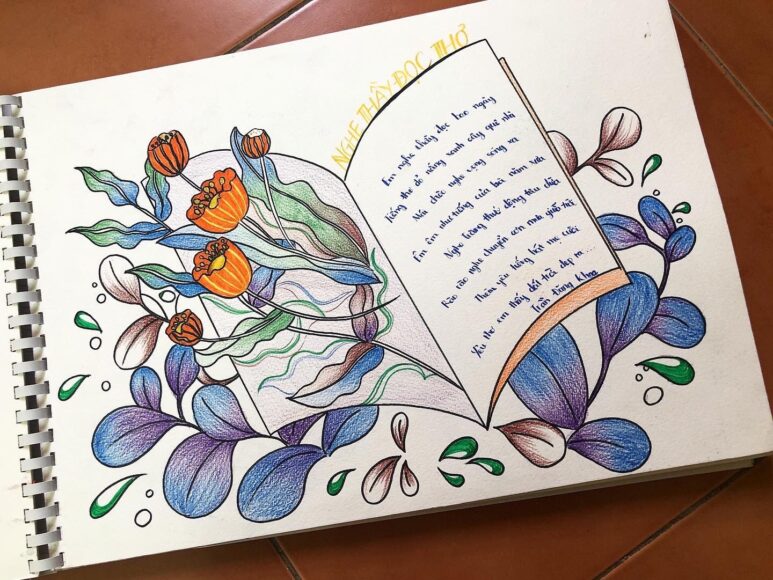 NGHE THẦY ĐỌC THƠ
Em nghe thầy đọc bao ngày
Tiếng thơ đỏ nắng xanh cây quanh nhà
Mái chèo nghe vọng sông xa
Êm êm như tiếng của bà năm xưa
Nghe trăng thuở động tàu dừa
Rào rào nghe chuyển cơn mưa giữa trời
Thêm yêu tiếng hát mẹ cười
Yêu thơ em thấy đất trời đẹp ra...
Trần Đăng Khoa